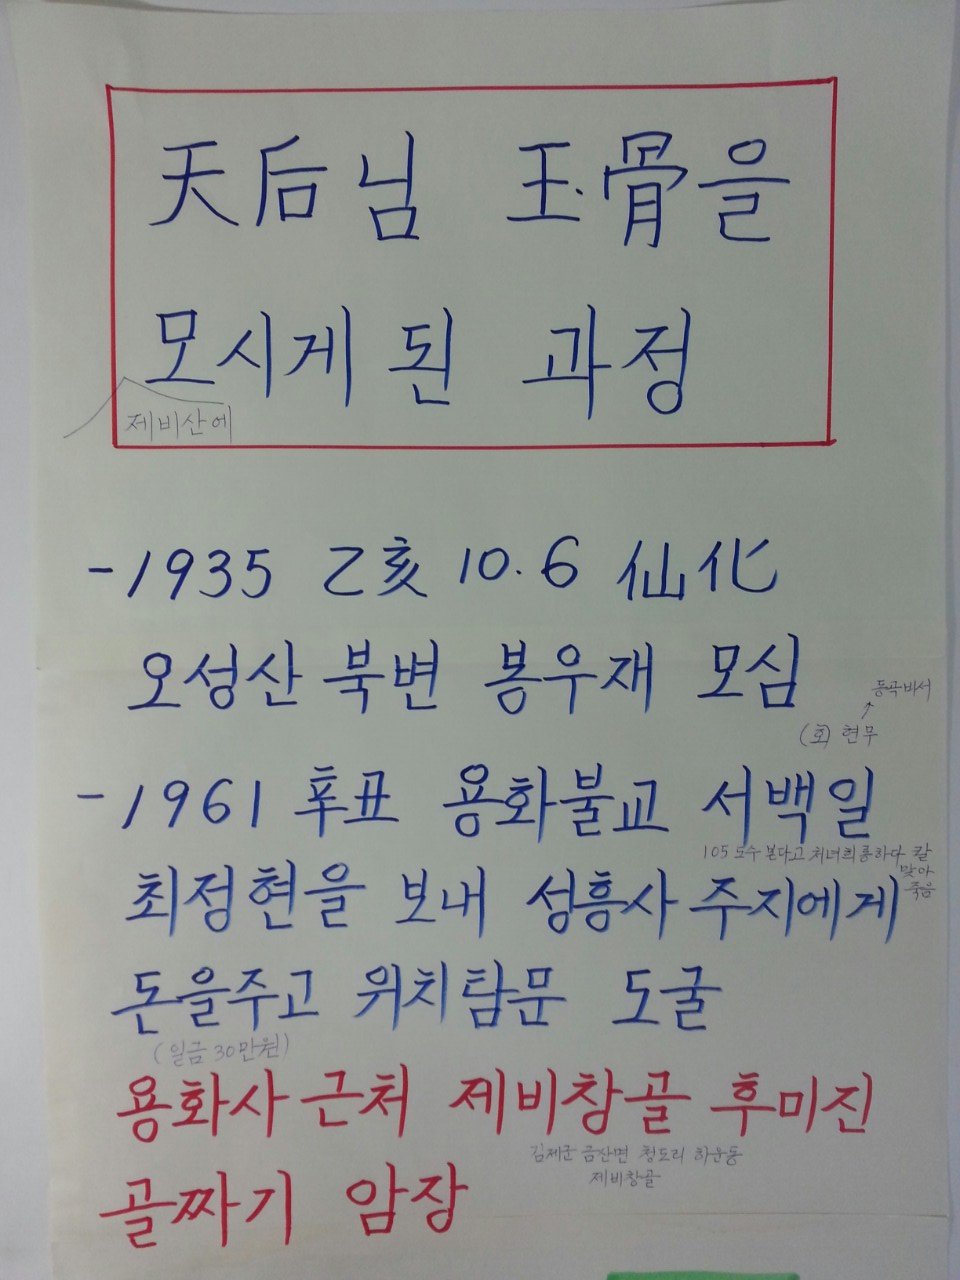 天后님 玉骨을
모시게 된 과정
제비산에
-1935 乙亥 10.6 仙化
오성산 북변 봉우재 모심
동곡바서
(호) 현무
-1961 辛丑 용화불교 서백일
105 도수 본다고 처녀희롱하다 칼
맞아
죽음
최정현을 보내 성흥사 주지에게
돈을주고 위치탐문 도굴
(일금 30만원)
용화사 근처 제비창골 후미진
김제군 금산면 청도리 하운동
제비창골
골짜기 암장